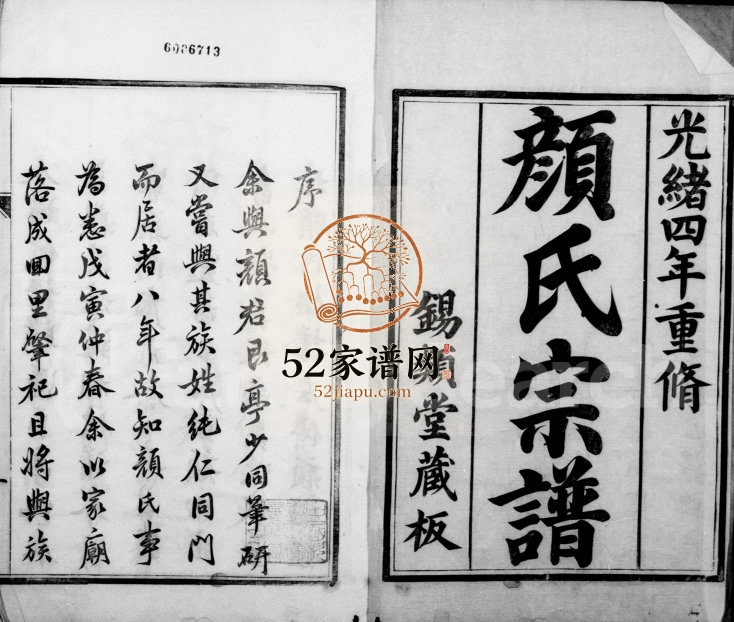 6006713
光緒四年重脩
顔氏宗譜
錫類堂藏板
序
余與顔君良亭少同筆研
又嘗與其族姓純仁同門
而居者八年故知顔氏事
為悉戊寅仲春余以家廟
落成回里肇祀且將與族
52家谱网
52jiapu.com